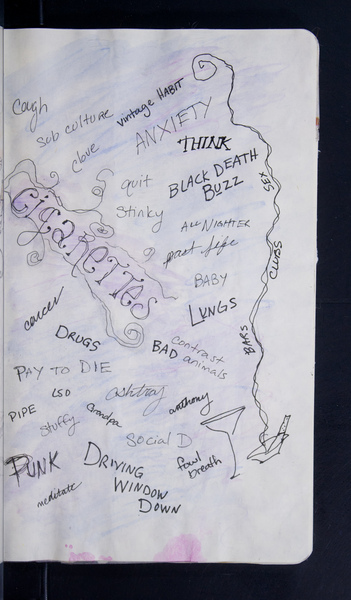 Cough
sub culture
vintage HABIT
clove
ANXIETY
THINK
quit
BLACK DEATH
BUZZ
SEX
Stinky
cigarettes
ALL NIGHTER
past life
CLUBS
BABY
LUNGS
cancer
DRUGS
BARS
BAD
contrast
animals
PAY TO DIE
LSD
ashtray
anthony
PIPE
stuffy
Grandpa
Social D
PUNK
DRIVING
WINDOW
DOWN
fowl
breath
meditate